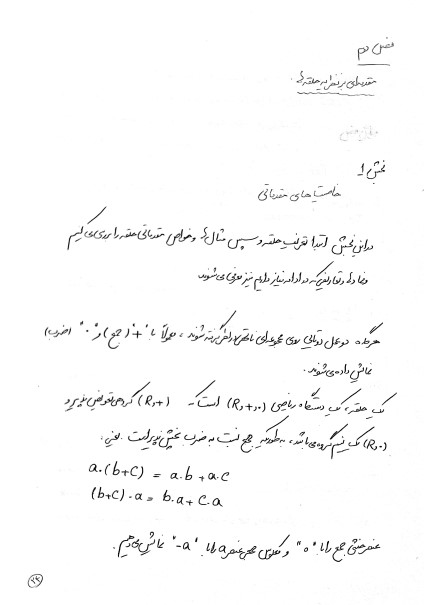 فصل دوم
مقدمه‌ای بر نظریه حلقه‌ها.
بخش ۱
خاصیت‌های مقدماتی
در این بخش ابتدا تعریف حلقه و سپس مثال‌ها و خواص مقدماتی حلقه را بررسی می‌کنیم
و نمادها و تعاریفی که در ادامه نیاز داریم نیز معرفی می‌شوند
هرگاه دو عمل دوتایی روی مجموعه‌ای ناتهی در نظر گرفته شوند، معمولاً با "+" (جمع) و "." (ضرب)
نمایش داده می‌شوند.
یک حلقه، یک دستگاه ریاضی (R,+,.) است که (R,+) گروهی تعویض پذیر و
(R,.) یک نیم‌گروه می‌باشد، به‌طوری‌که جمع نسبت به ضرب پخش‌پذیر است. یعنی،
a.(b+c) = a.b + a.c
(b+c).a = b.a + c.a
عنصر خنثی جمع را با "0" و معکوس جمعی عنصر a را با "-a" نمایش می‌دهیم.